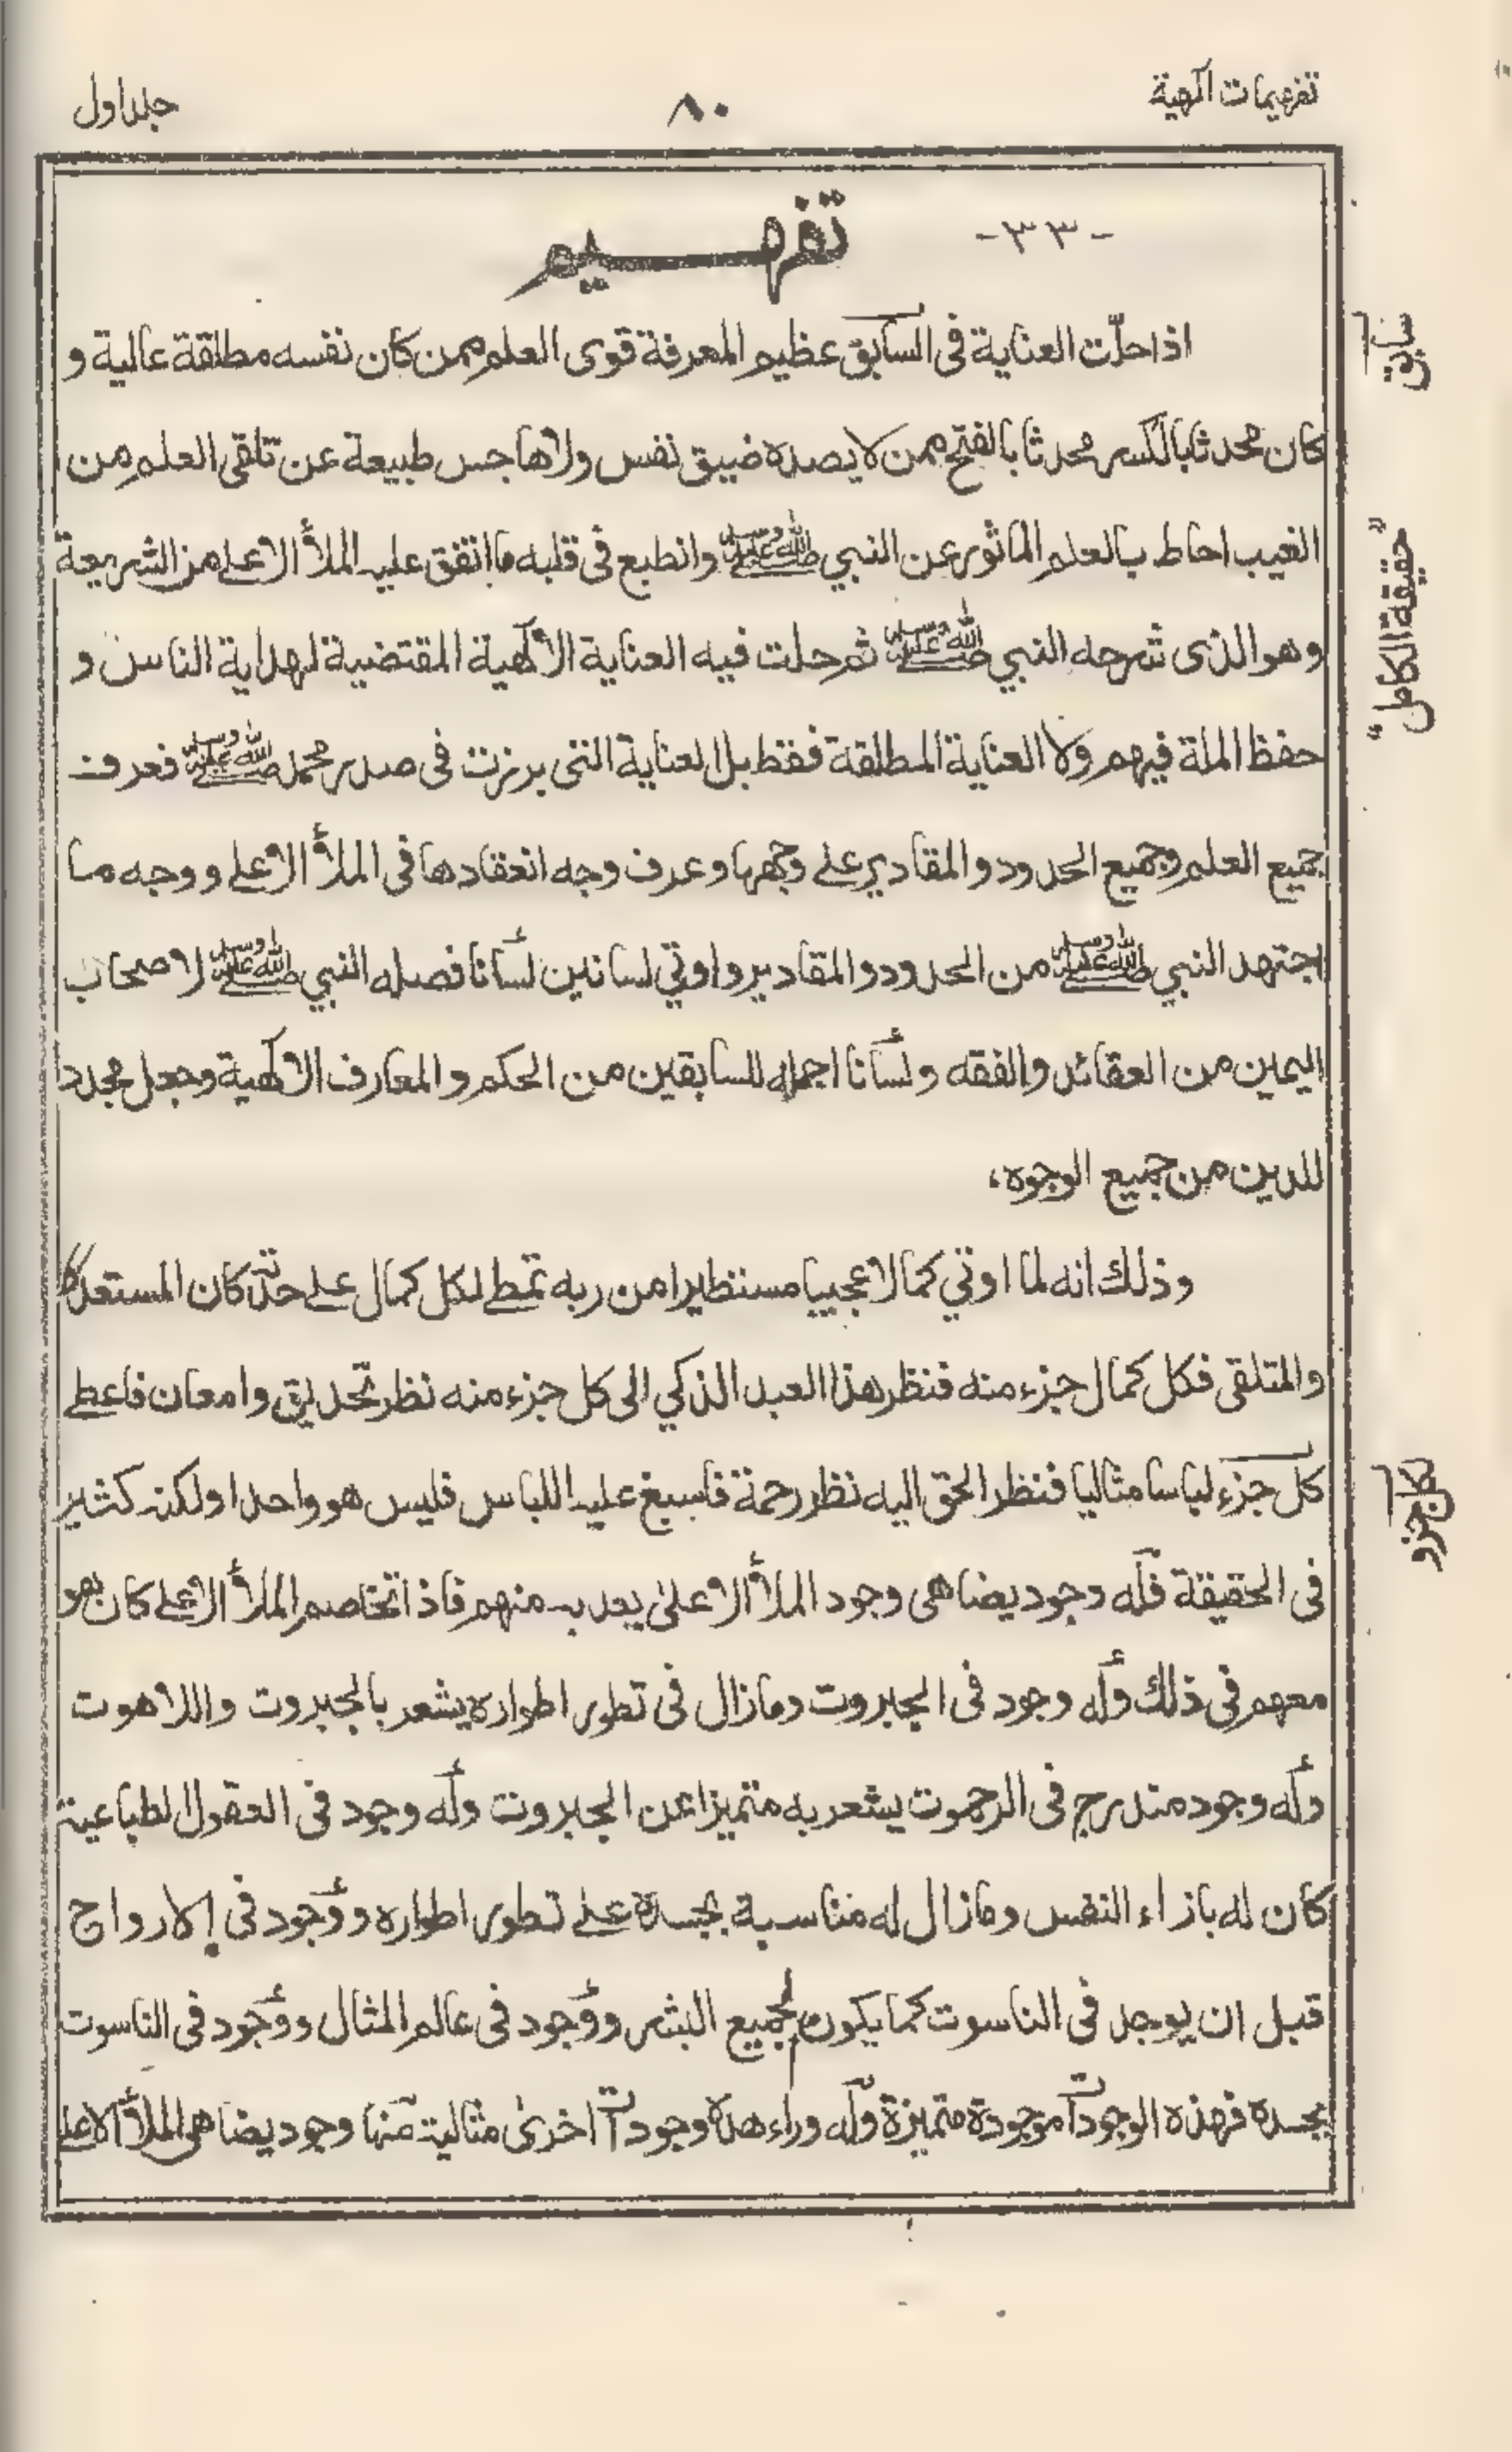 تفهيمات الٰهية
٨٠
جلد اول
-٣٣-
تفهـــيم
اذا حلّت العناية فى السابق عظيم المعرفة قوى العلم ممن كان نفسه مطلقة عالية و
كان محدثا بالكسر محدثا بالفتح ممن لا يصده ضيق نفس ولا هاجس طبيعة عن تلقى العلم من
الغيب احاط بالعلم الماثور عن النبي ﷺ وانطبع فى قلبه ما اتفق عليه الملأ الاعلے من الشريعة
وهو الذى شرحه النبي ﷺ ثم حلت فيه العناية الالٰهية المقتضية لهداية الناس و
حفظ الملة فيهم ولا العناية المطلقة فقط بل العناية التى برزت فى صدر محمد ﷺ فعرف
جميع العلم وجميع الحدود والمقادير علے وجهها وعرف وجه انعقادها فى الملأ الاعلے ووجه ما
اجتهد النبي ﷺ من الحدود والمقادير واوتي لسانين لساناً فصله النبي ﷺ لاصحاب
اليمين من العقائد والفقه ولساناً اجمله للسابقين من الحكم والمعارف الالٰهية وجعل مجددا
للدين من جميع الوجوه،
وذلك انه لما اوتي كمالا عجيبا مستطيرا من ربه تمطے لكل كمال علے حدّته كان المستعد
والمتلقى فكل كمال جزء منه فنظر هذا العبد الذكي الى كل جزء منه نظر تحديق وامعان فاعطے
كل جزء لباسا مثاليا فنظر الحق اليه نظر رحمة فاسبغ عليه اللباس فليس هو واحدا ولكنه كثير
فى الحقيقة فله وجود يضاهى وجود الملأ الاعلىٰ يعد به منهم فاذا تخاصم الملأ الاعلے كان هو
معهم فى ذلك وله وجود فى الجبروت ومازال فى تطور اطواره يشعر بالجبروت واللاهوت
وله وجود مندرج فى الرحموت يشعر به متميزا عن الجبروت وله وجود فى العقول الطباعية
كان له بازاء النفس ومازال له مناسبة بجسده علے تطور اطواره ووجود فى الارواح
قبل ان يوجد فى الناسوت كما يكون لجميع البشر ووجود فى عالم المثال ووجود فى الناسوت
بجسده فهذه الوجودات موجودة متميزة وله وراء هذه وجودات اخرىٰ مثالية منها وجود يضاهى الملأ الاعلے
سابق
"حقيقة الكامل"
لكل جزو